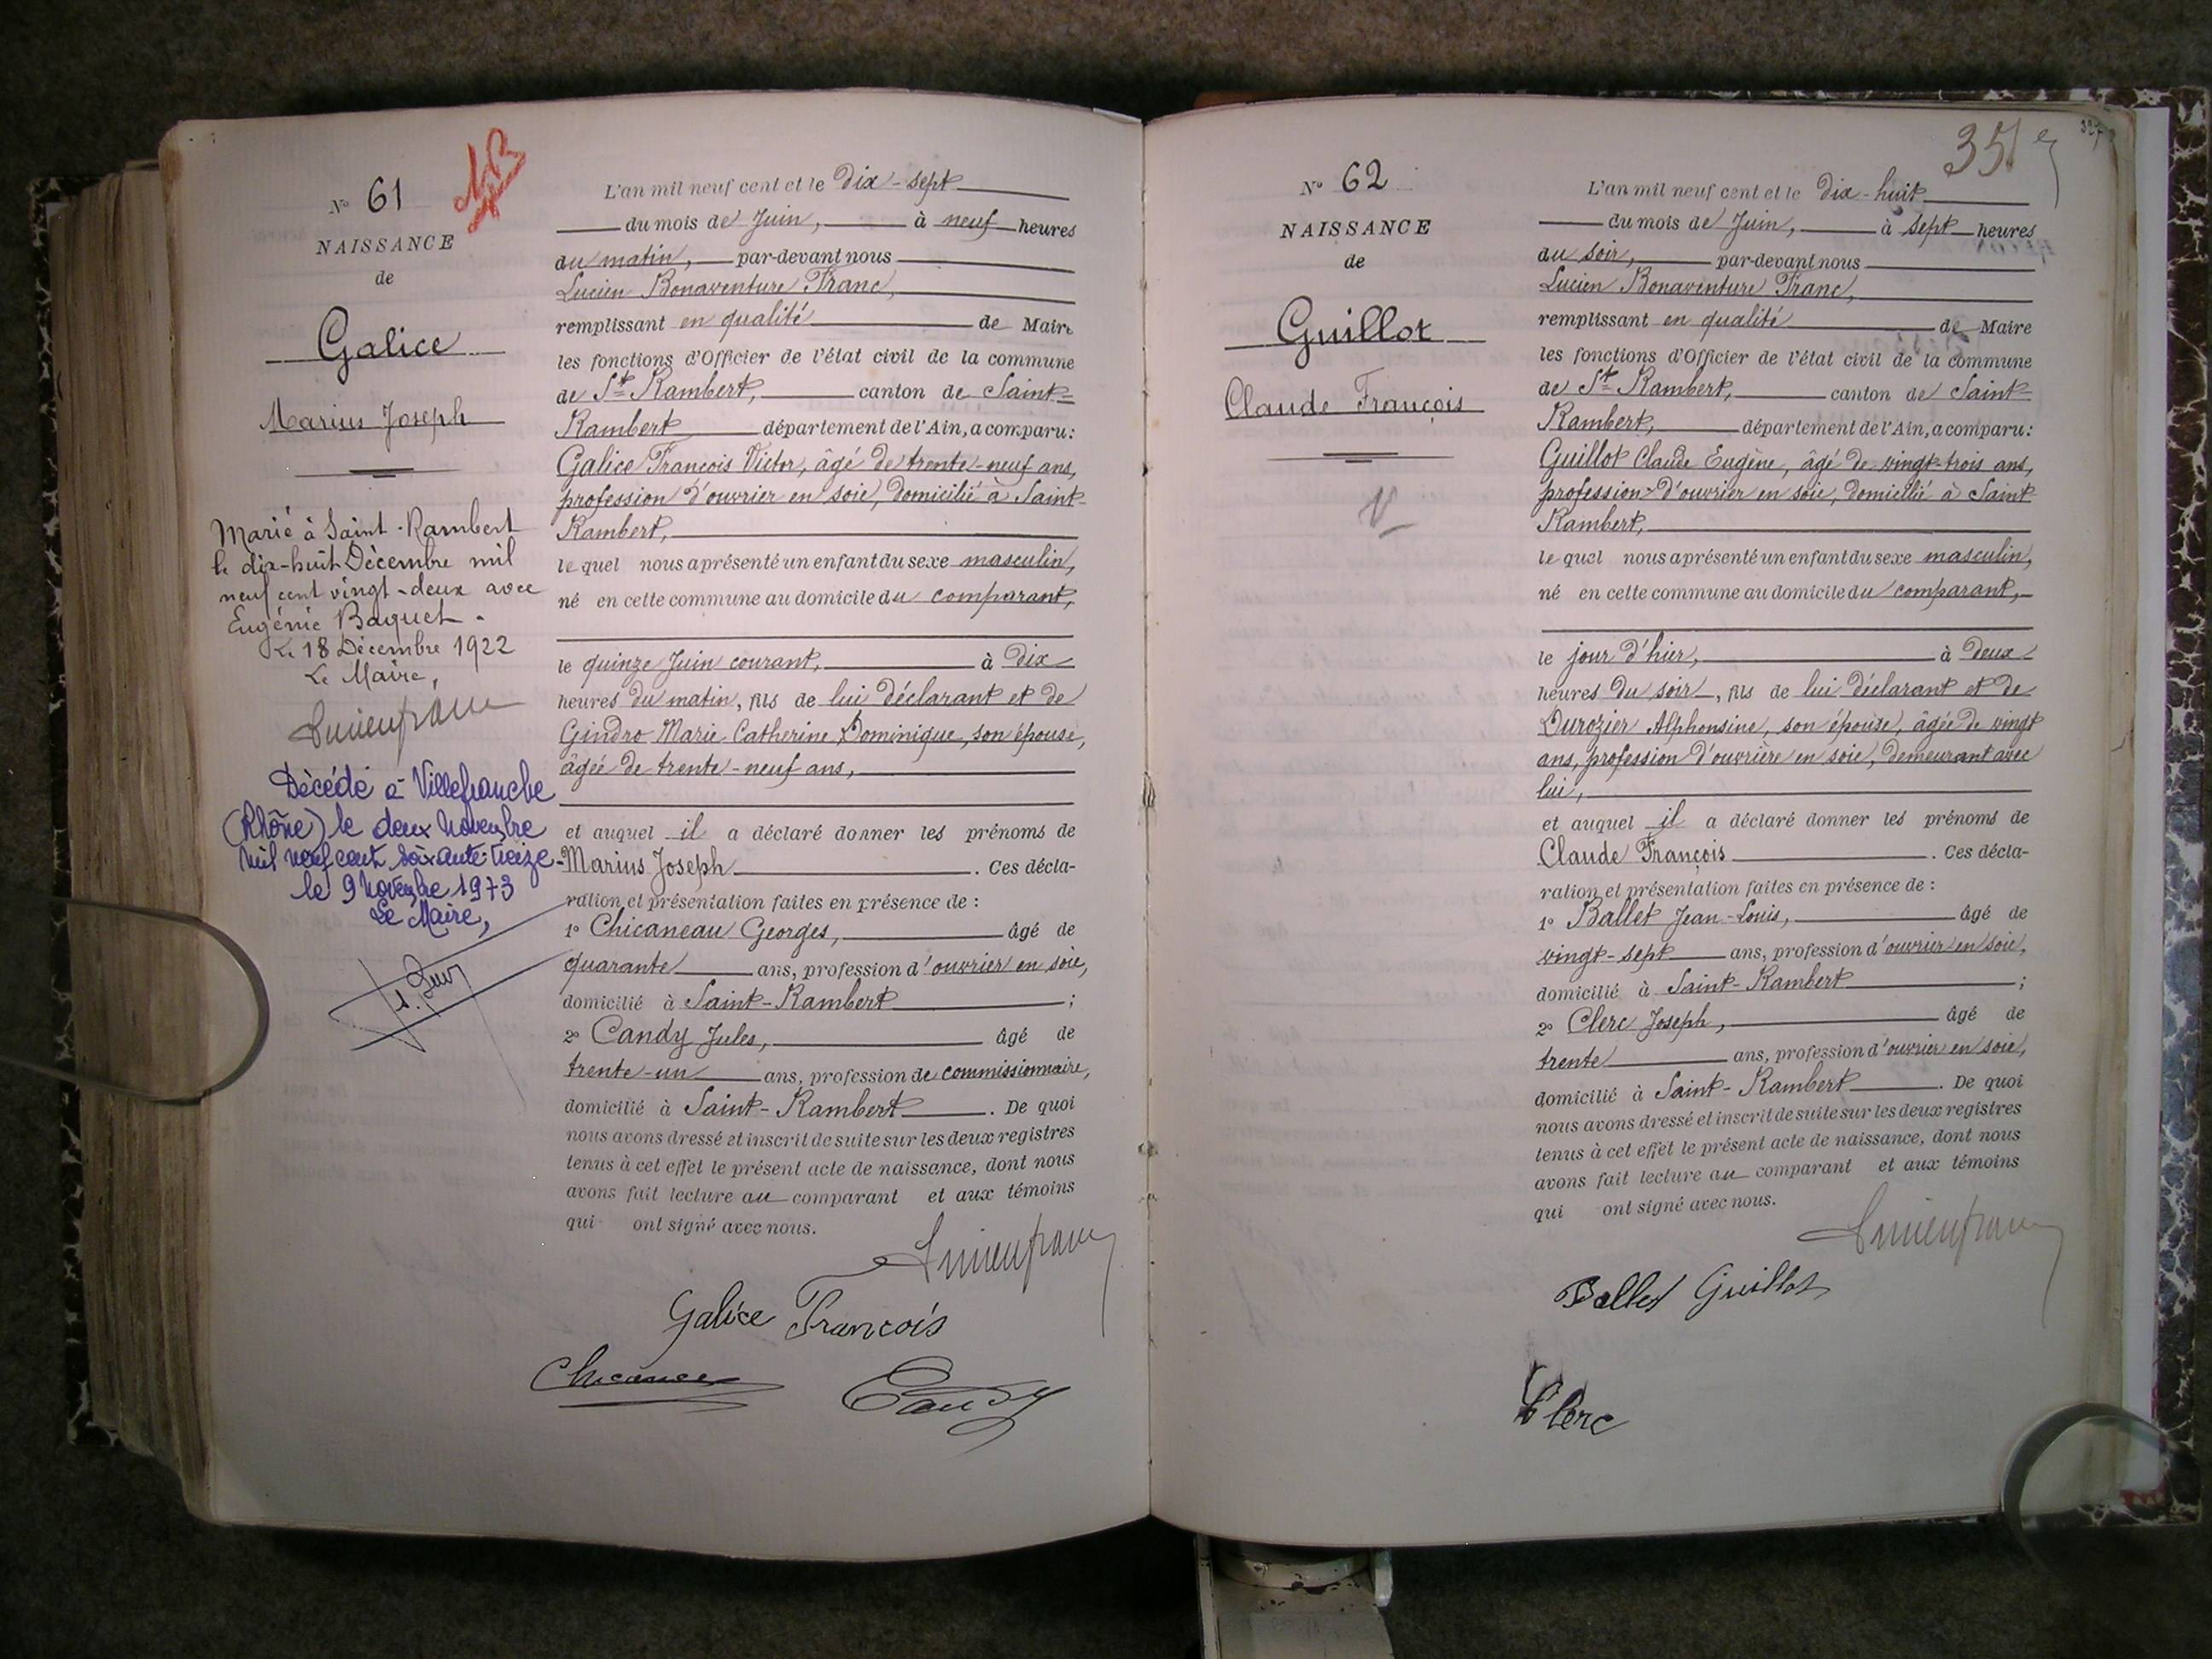 N° 61
NAISSANCE
de
Galice
Marius Joseph
Marié à Saint-Rambert
le dix-huit Décembre mil
neuf cent vingt-deux avec
Eugénie Baquet.
Le 18 Décembre 1922
Le Maire,
Décédé à Villefranche
(Rhône) le deux Novembre
mil neuf cent soixante-treize
le 9 Novembre 1973
Le Maire,
L'an mil neuf cent et le dix-sept
du mois de Juin, à neuf heures
du matin, par-devant nous
Lucien Bonaventure Franc,
remplissant en qualité de Maire
les fonctions d'Officier de l'état civil de la commune
de St Rambert, canton de Saint-
Rambert département de l'Ain, a comparu:
Galice François Victor, âgé de trente-neuf ans,
profession d'ouvrier en soie, domicilié à Saint-
Rambert,
lequel nous a présenté un enfant du sexe masculin,
né en cette commune au domicile du comparant,
le quinze Juin courant, à dix
heures du matin, fils de lui déclarant et de
Gindro Marie Catherine Dominique, son épouse,
âgée de trente-neuf ans,
et auquel il a déclaré donner les prénoms de
Marius Joseph. Ces décla-
ration et présentation faites en présence de :
1° Chicaneau Georges, âgé de
quarante ans, profession d'ouvrier en soie,
domicilié à Saint-Rambert ;
2° Candy Jules, âgé de
trente-un ans, profession de commissionnaire,
domicilié à Saint-Rambert. De quoi
nous avons dressé et inscrit de suite sur les deux registres
tenus à cet effet le présent acte de naissance, dont nous
avons fait lecture au comparant et aux témoins
qui ont signé avec nous.
Lucien Franc
Galice François
Candy
35
327
N° 62
NAISSANCE
de
Guillot
Claude François
L'an mil neuf cent et le dix-huit
du mois de Juin, à sept heures
du soir, par-devant nous
Lucien Bonaventure Franc,
remplissant en qualité de Maire
les fonctions d'Officier de l'état civil de la commune
de St Rambert, canton de Saint-
Rambert, département de l'Ain, a comparu:
Guillot Claude Eugène, âgé de vingt-trois ans,
profession d'ouvrier en soie, domicilié à Saint-
Rambert,
lequel nous a présenté un enfant du sexe masculin,
né en cette commune au domicile du comparant,
le jour d'hier, à deux
heures du soir, fils de lui déclarant et de
Durozier Alphonsine, son épouse, âgée de vingt
ans, profession d'ouvrière en soie, demeurant avec
lui,
et auquel il a déclaré donner les prénoms de
Claude François. Ces décla-
ration et présentation faites en présence de :
1° Ballet Jean-Louis, âgé de
vingt-sept ans, profession d'ouvrier en soie,
domicilié à Saint-Rambert ;
2° Clerc Joseph, âgé de
trente ans, profession d'ouvrier en soie,
domicilié à Saint-Rambert. De quoi
nous avons dressé et inscrit de suite sur les deux registres
tenus à cet effet le présent acte de naissance, dont nous
avons fait lecture au comparant et aux témoins
qui ont signé avec nous.
Lucien Franc
Ballet Guillot
Clerc